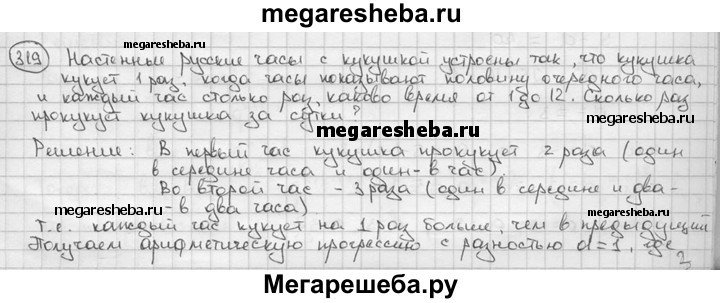 megaresheba.ru
319 Настенные русские часы с кукушкой устроены так, что кукушка
кукует 1 раз, когда часы показывают половину очередного часа,
и каждый час столько раз, каково время от 1 до 12. Сколько раз
прокукует кукушка за сутки?
megaresheba.ru
megaresheba.ru
megaresheba.ru
megaresheba.ru
Решение: В первый час кукушка прокукует 2 раза (один
в середине часа и один - в час)
Во второй час - 3 раза (один в середине и два-
- в два часа)
megaresheba.ru
megaresheba.ru
т.е. каждый час кукует на 1 раз больше, чем в предыдущий
Получаем арифметическую прогрессию с разностью d=1, где
Мегарешеба.ру